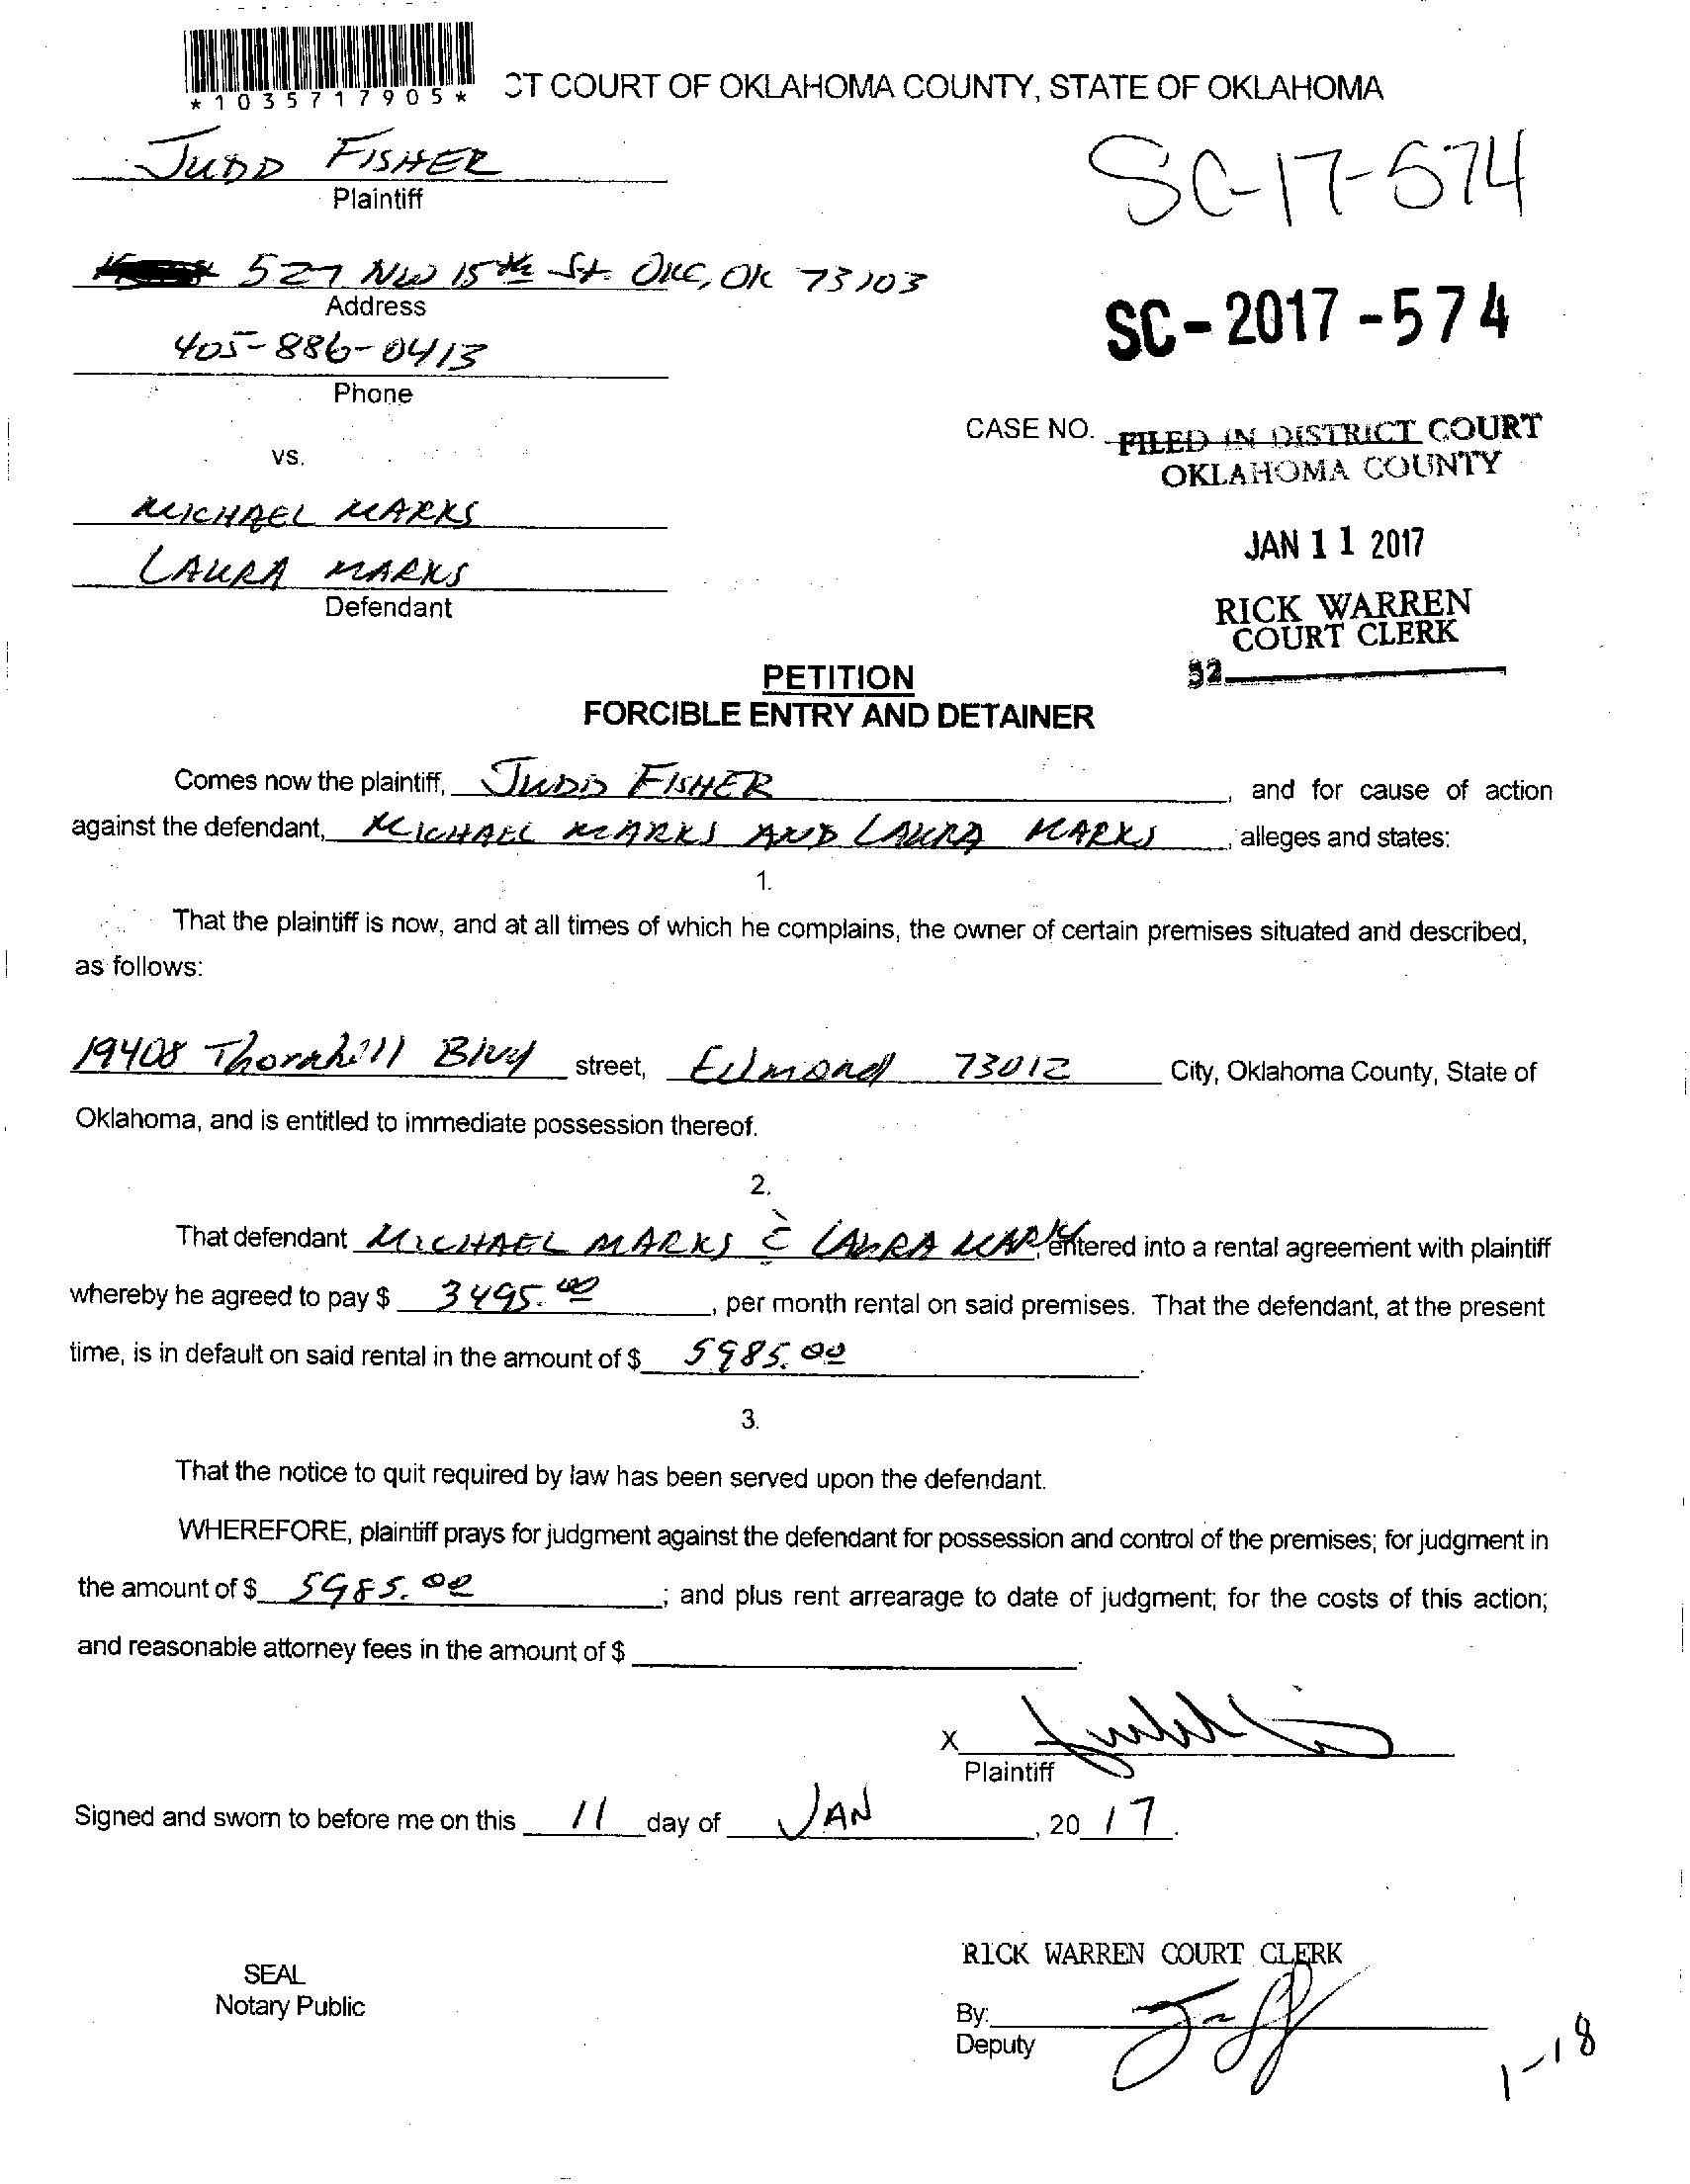 *1035717905*
CT COURT OF OKLAHOMA COUNTY, STATE OF OKLAHOMA
JUDD FISHER
Plaintiff
SC-17-574
527 NW 15th St. OKC, OK 73103
Address
SC-2017-574
405-886-0413
Phone
CASE NO. FILED IN DISTRICT COURT
OKLAHOMA COUNTY
vs.
MICHAEL MARKS
JAN 11 2017
LAURA MARKS
Defendant
RICK WARREN
COURT CLERK
32
PETITION
FORCIBLE ENTRY AND DETAINER
Comes now the plaintiff, JUDD FISHER, and for cause of action
against the defendant, MICHAEL MARKS AND LAURA MARKS, alleges and states:
1.
That the plaintiff is now, and at all times of which he complains, the owner of certain premises situated and described,
as follows:
19408 Thornhill Blvd street, Edmond 73012 City, Oklahoma County, State of
Oklahoma, and is entitled to immediate possession thereof.
2.
That defendant MICHAEL MARKS & LAURA MARKS, entered into a rental agreement with plaintiff
whereby he agreed to pay $ 3495.00, per month rental on said premises. That the defendant, at the present
time, is in default on said rental in the amount of $ 5985.00.
3.
That the notice to quit required by law has been served upon the defendant.
WHEREFORE, plaintiff prays for judgment against the defendant for possession and control of the premises; for judgment in
the amount of $ 5985.00; and plus rent arrearage to date of judgment; for the costs of this action;
and reasonable attorney fees in the amount of $ .
X
Plaintiff
Signed and sworn to before me on this 11 day of JAN, 20 17.
RICK WARREN COURT CLERK
SEAL
Notary Public
By:
Deputy
1-18